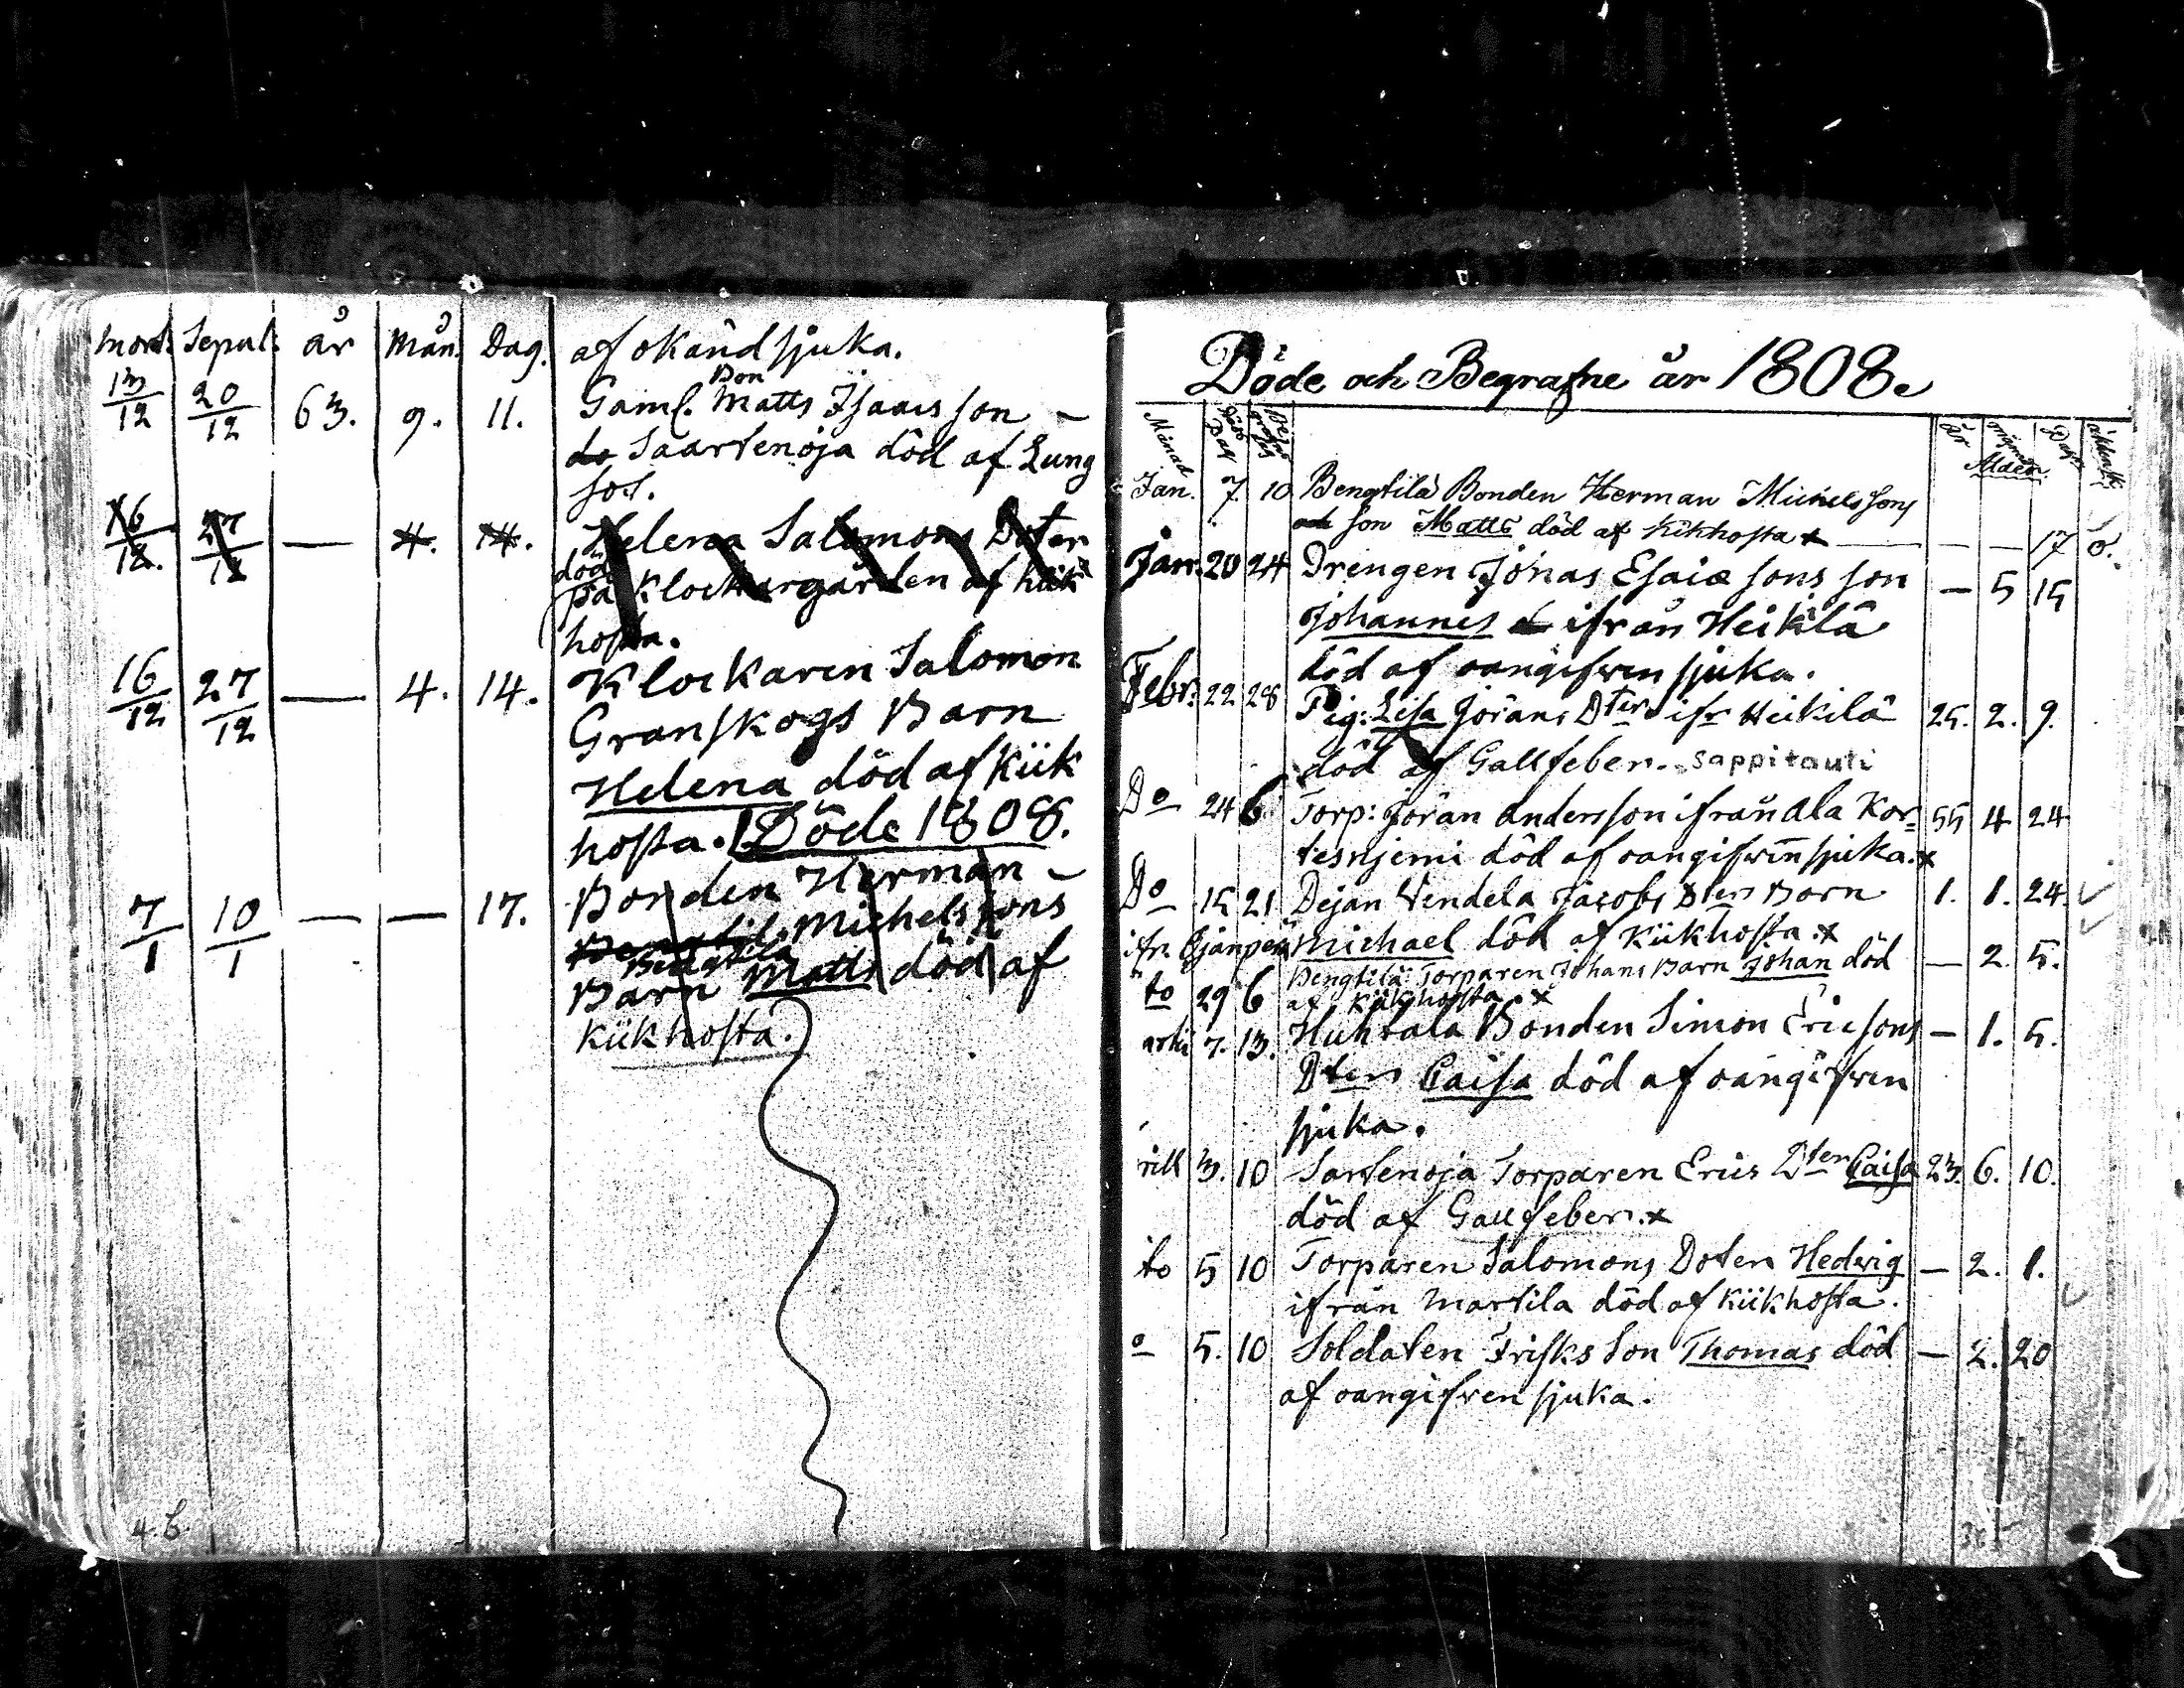 Mort. Sepul. år Mån. Dag. af okänd sjuka.
Bon
13/12 20/12 63. 9. 11. Gaml. Matts Isaacs son –
do Saartenoja död af Lung
sot.
16/12. 27/12 — 4. 14. Helena Salomons Doter
död
på Klockargården af kik
hosta.
16/12 27/12 — 4. 14. Klockaren Salomon
Granskogs Barn
Helena död af Kiik
hosta. Döde 1808.
7/1 10/1 — — 17. Bonden Herman –
Bengtil. Michelssons
Bengtila
Barn Matts död af
Kiikhosta.
4.6.
Döde och Begrafne år 1808.
Månad Död Dag År Dagar
Ålder.
Jan. 7. 10 Bengtilä Bonden Herman Michelssons
och son Matts död af Kikhosta x — — — 17 6.
Jan. 20 24 Drengen Jonas Esaiæ sons son — 5 15
Johannes ifrån Heikilä
död af oangifwen sjuka.
Febr. 22 28 Pig: Lisa Jörans Dter ifr Heikilä 25. 2. 9.
död af Gallfeber. sappitauti
Do 24 6. Torp: Jöran Andersson ifrån Ala Kor= 55 4 24
tesnjemi död af oangifwen sjuka. x
Do 15 21 Dejan Vendela Jacobs Dters Barn 1. 1. 24.
ifr. Michael död af Kiikhosta x
Bengtilä Torparen Johans Barn Johan död — 2. 5.
to 29 6 af Kiikhosta. x
7. 13. Huhtala Bonden Simon Ericsons — 1. 5.
Dter Caisa död af oangifwen
sjuka.
rill 3. 10 Sartenoja Torparen Erics Dter Caisa 23. 6. 10.
död af Gallfeber. x
to 5 10 Torparen Salomons Doter Hedvig — 2. 1.
ifrån Martila död af Kiikhosta.
o 5. 10 Soldaten Frisks Son Thomas död — 2. 20
af oangifwen sjuka.